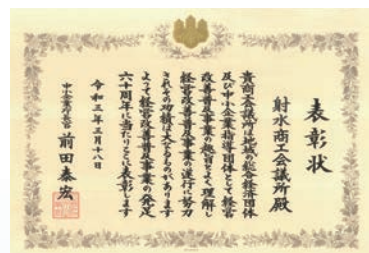 表彰状
射水商工会議所殿
貴商工会議所は地域の総合経済団体
及び中小企業指導団体として経営
改善普及事業の趣旨をよく理解し
経営改善普及事業の遂行に努力
されその功績は大なるものがあります
よって経営改善普及事業の発足
六十周年に当たりここに表彰します
令和三年三月十八日
中小企業庁長官 前田泰宏